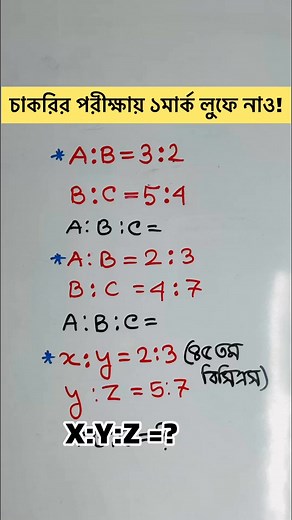 চাকরির পরীক্ষায় ১মার্ক লুফে নাও!
* A:B=3:2
B:C=5:4
A:B:C=
* A:B=2:3
B:C=4:7
A:B:C=
* x:y=2:3 (৪৫তম
বিসিএস)
y:Z=5:7
X:Y:Z =?